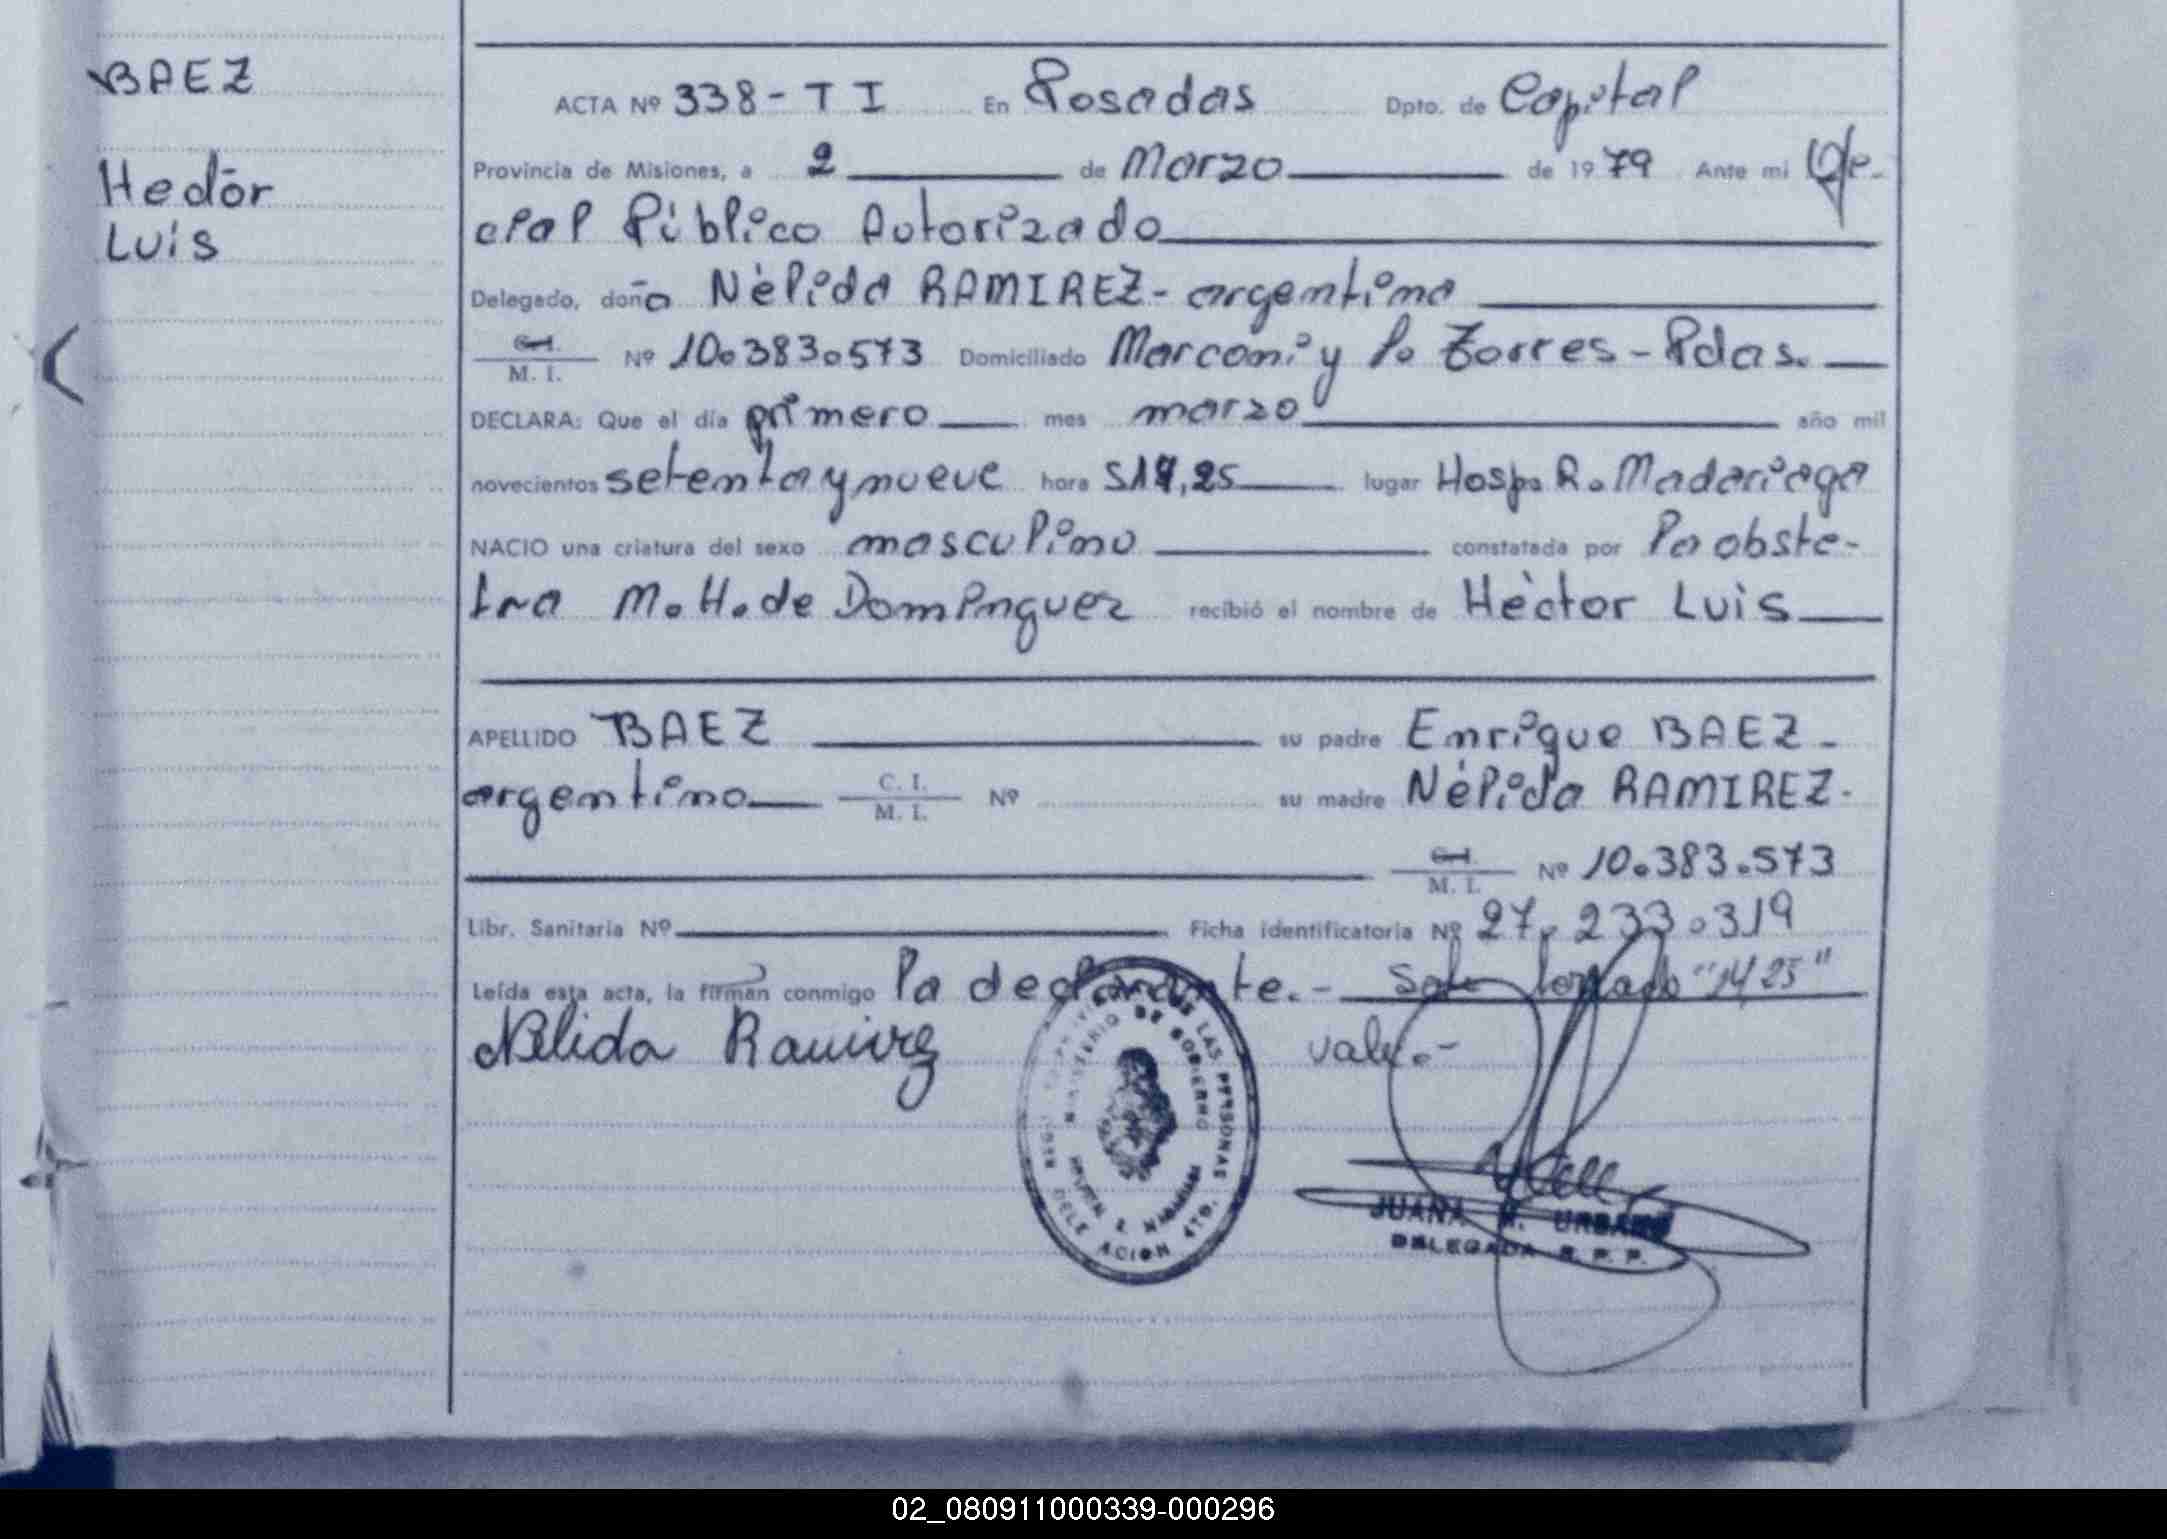 BAEZ
Hedor
Luis
ACTA Nº 338-TI En Posadas Dpto. de Capital
Provincia de Misiones, a 2 de Marzo de 1979 Ante mi Ofi-
cial Público Autorizado
Delegado, doña Nèlida RAMIREZ- argentina
C.I. M. I. Nº 10.383.573 Domiciliado Marconi y Lo Torres - Pdas.
DECLARA: Que el día primero mes marzo año mil
novecientos setenta y nueve hora s14,25 lugar Hosp. R. Madariaga
NACIO una criatura del sexo masculino constatada por la obste-
tra M. H. de Dominguez recibió el nombre de Hèctor Luis
APELLIDO BAEZ su padre Enrique BAEZ-
argentino C. I. M. I. Nº su madre Nèlida RAMIREZ-
C.I. M. I. Nº 10.383.573
Libr. Sanitaria Nº Ficha identificatoria Nº 27.233.319
Leída esta acta, la firman conmigo la declarante.- Sobre "1425"
Nelida Ramirez vale.-
DE LAS PERSONAS
MINISTERIO DE GOBIERNO
JUANA URBANO
DELEGADA R. P. P.
02_080911000339-000296